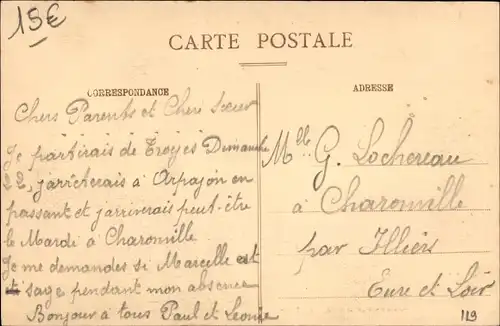 15€
CARTE POSTALE
CORRESPONDANCE
Chers Parents et Cheri Sœur
Je partirais de Troyes Dimanche
22, jarrêterais à Arpajon en
passant et jarriverais peut-être
le Mardi à Charonville
Je me demandes si Marcelle est
sage pendant mon absence
Bonjour à tous Paul et Leonie
ADRESSE
Melle G. Lochereau
à Charonville
par Illiers
Eure et Loir
119